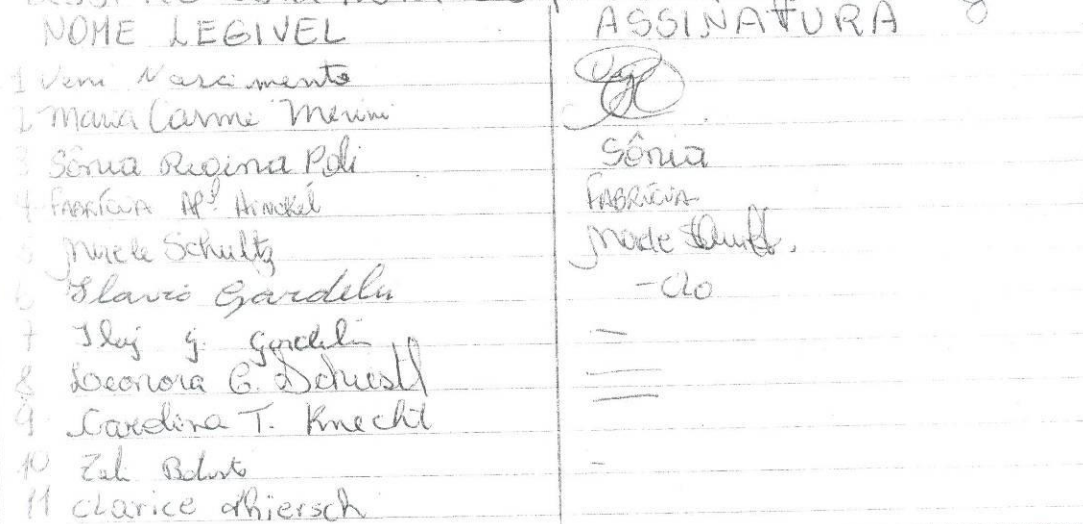 NOME LEGIVEL ASSINATURA
1 Veni Nascimento
2 Maria Carme Merini
3 Sônia Regina Poli Sônia
4 FABRÍCIA Apª HINCKEL FABRÍCIA
5 Schultz
6 Flavio Gardelin
7 G. Gardelin
8 Leonora C. Schiestl
9 Carolina T. Knecht
10
11 Clarice Thiersch